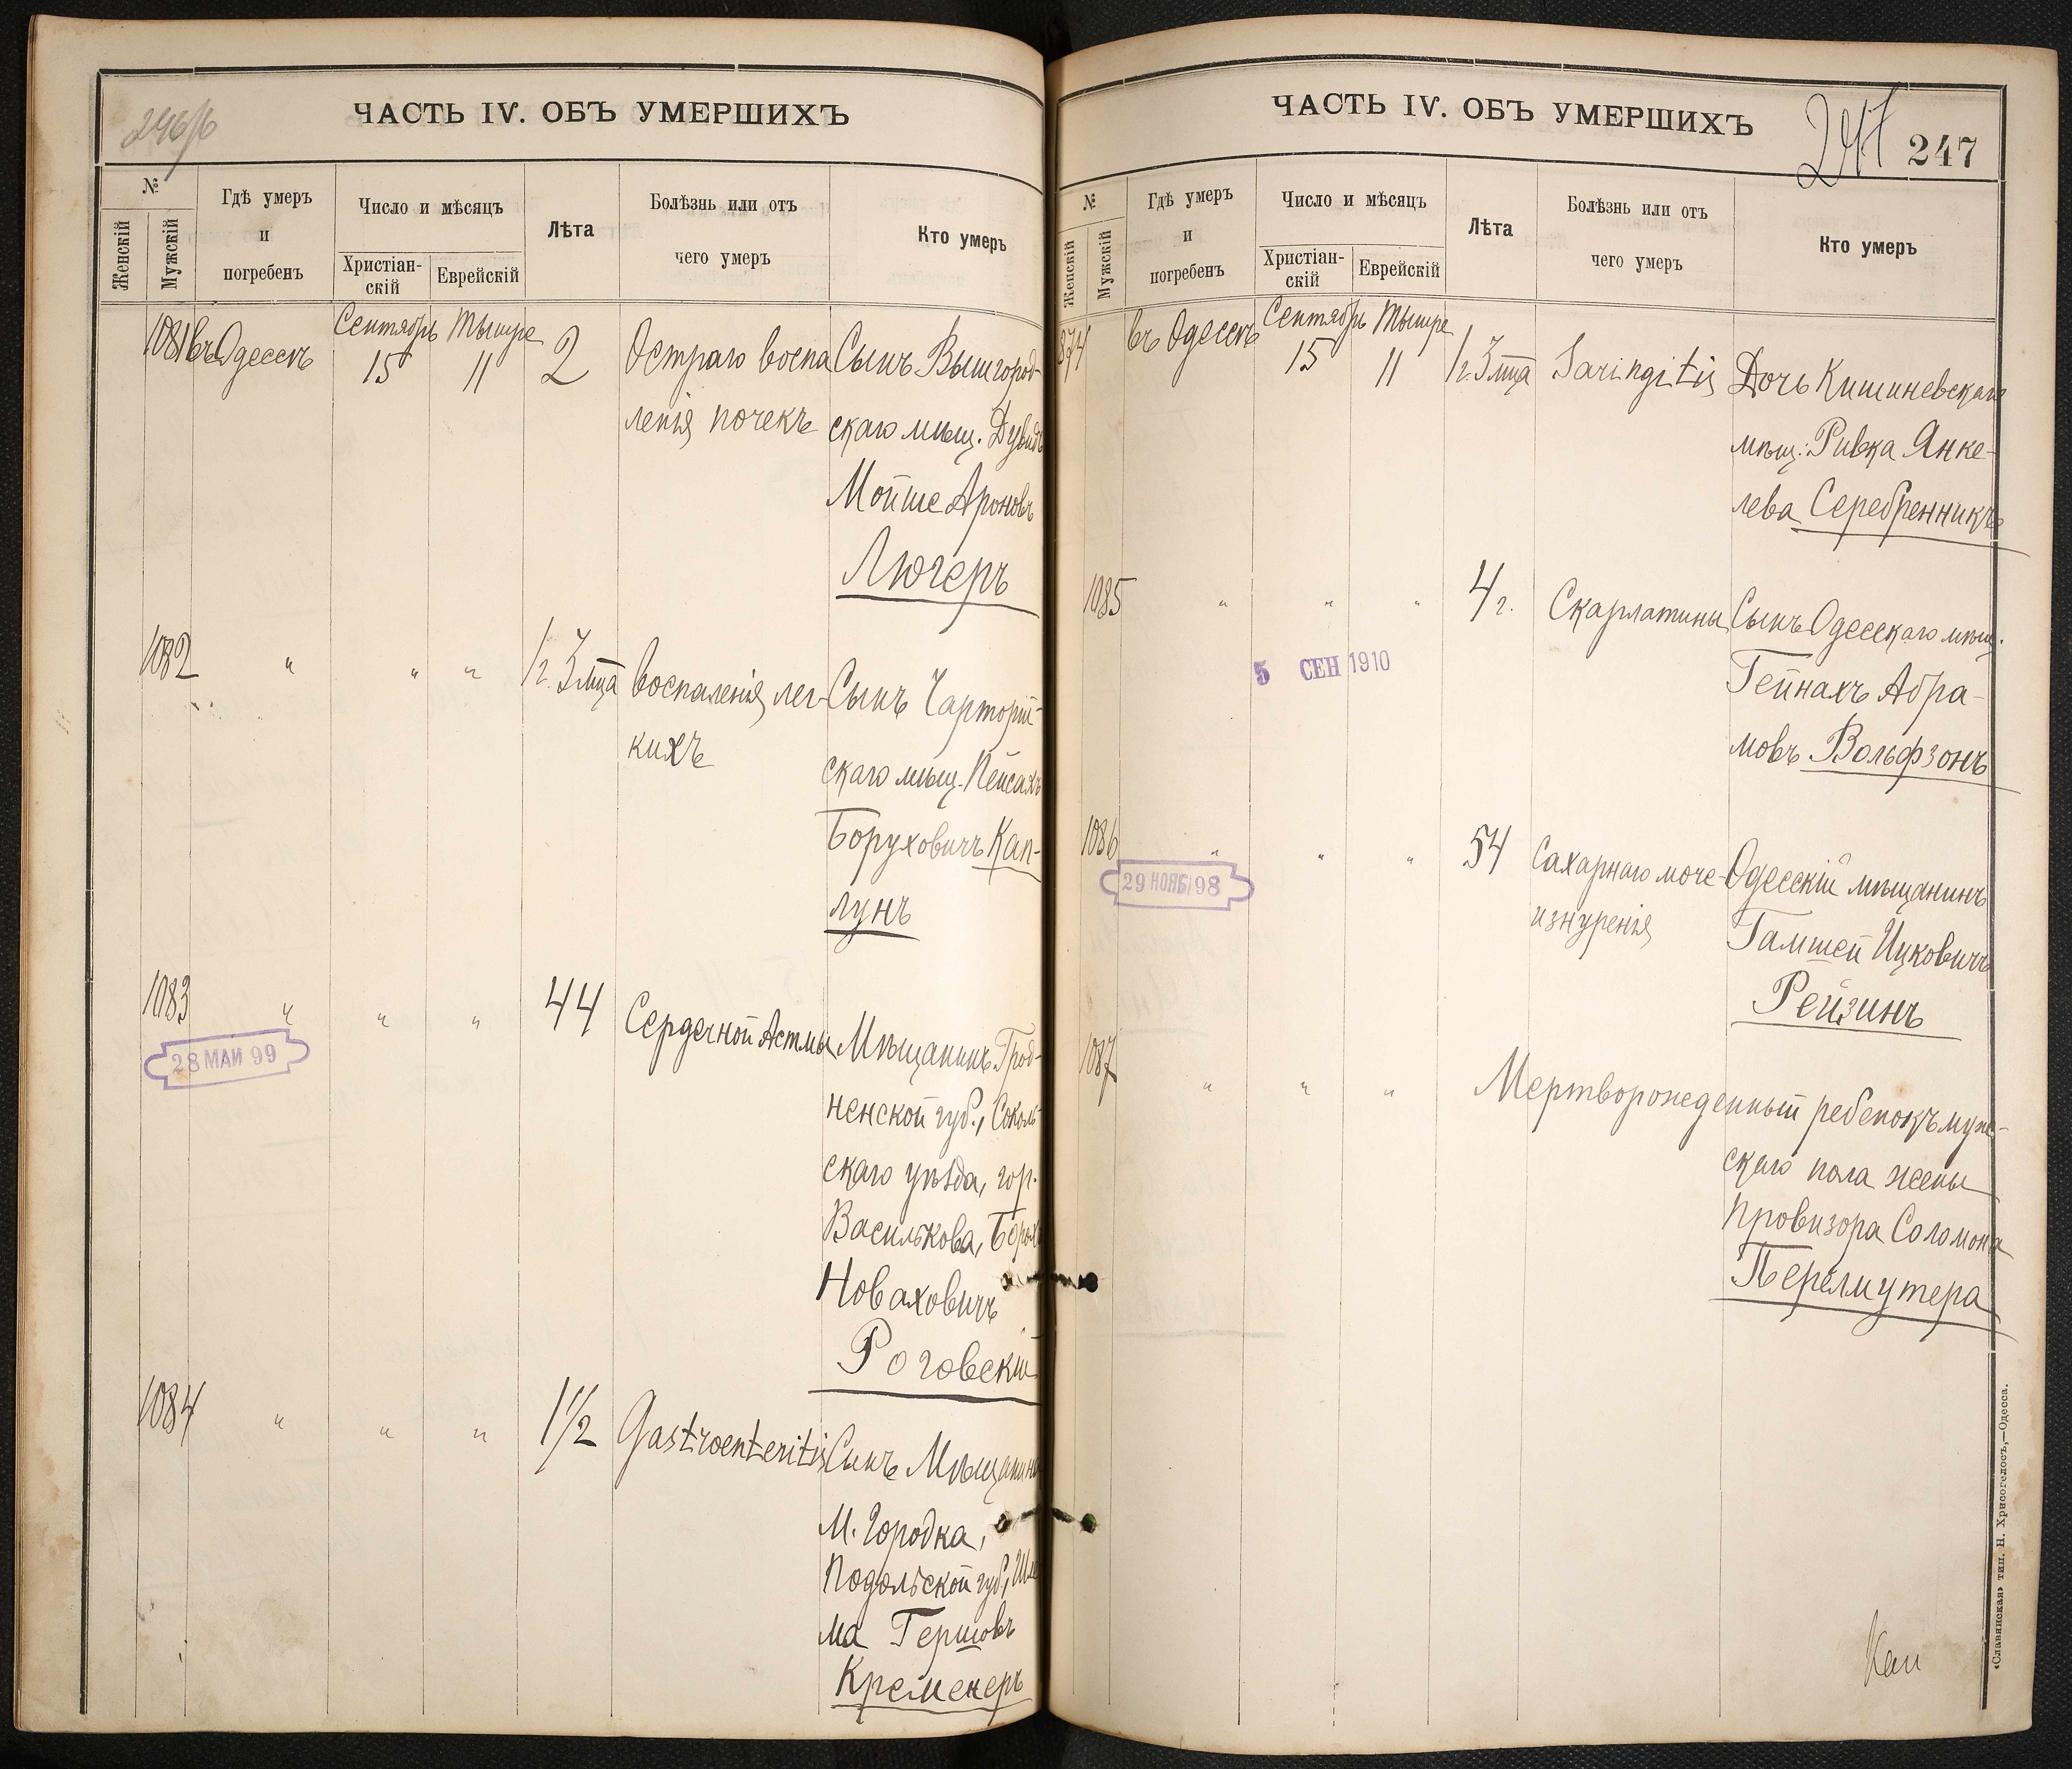 246/б
ЧАСТЬ IV. ОБЪ УМЕРШИХЪ
№
Женскій
Мужскій
Гдѣ умеръ
и
погребенъ
Число и мѣсяцъ
Христіан-
скій
Еврейскій
Лѣта
Болѣзнь или отъ
чего умеръ
Кто умеръ
1081 въ Одессѣ Сентябрь 15 Тышре 11 2 Остраго воспа
ленія почекъ
Сынъ Вышгород-
скаго мѣщ. Дувидъ
Мойше Ароновъ
Люгеръ
1082 " " " 1 г. 3 мца воспаленія лег-
кихъ
Сынъ Чарторій-
скаго мѣщ. Пейсахъ
Боруховичъ Кап-
лунъ
1083 " " " 44 Сердечной Астмы
28 МАИ 99
Мѣщанинъ Грод-
ненской губ., Соколь
скаго уѣзда, гор.
Василькова, Борухъ
Новаховичъ
Роговскій
1084 " " " 1 1/2 Gastroenteritis
Сынъ Мѣщанина
М. Городка,
Подольской губ.,
ма Гершовъ
Кременеръ
ЧАСТЬ IV. ОБЪ УМЕРШИХЪ
247 247
№
Женскій
Мужскій
Гдѣ умеръ
и
погребенъ
Число и мѣсяцъ
Христіан-
скій
Еврейскій
Лѣта
Болѣзнь или отъ
чего умеръ
Кто умеръ
874 въ Одессѣ Сентябрь 15 Тышре 11 1 г. 3 мца Laringitis
Дочь Кишиневскаго
мѣщ: Ривка Янке-
лева Серебренникъ
1085 " " " 4 г. Скарлатины
5 СЕН 1910
Сынъ Одесскаго мѣщ.
Гейнахъ Абра-
мовъ Вольфзонъ
1086 " " " 54 Сахарнаго моче-
изнуренія
29 НОЯБ 98
Одесскій мѣщанинъ
Гамшей Ицковичъ
Рейзинъ
1087 " " " Мертворожденный ребенокъ муж-
скаго пола жены
Провизора Соломона
Перелмутера
«Славянская» тип. Н. Хрисогелосъ,—Одесса.